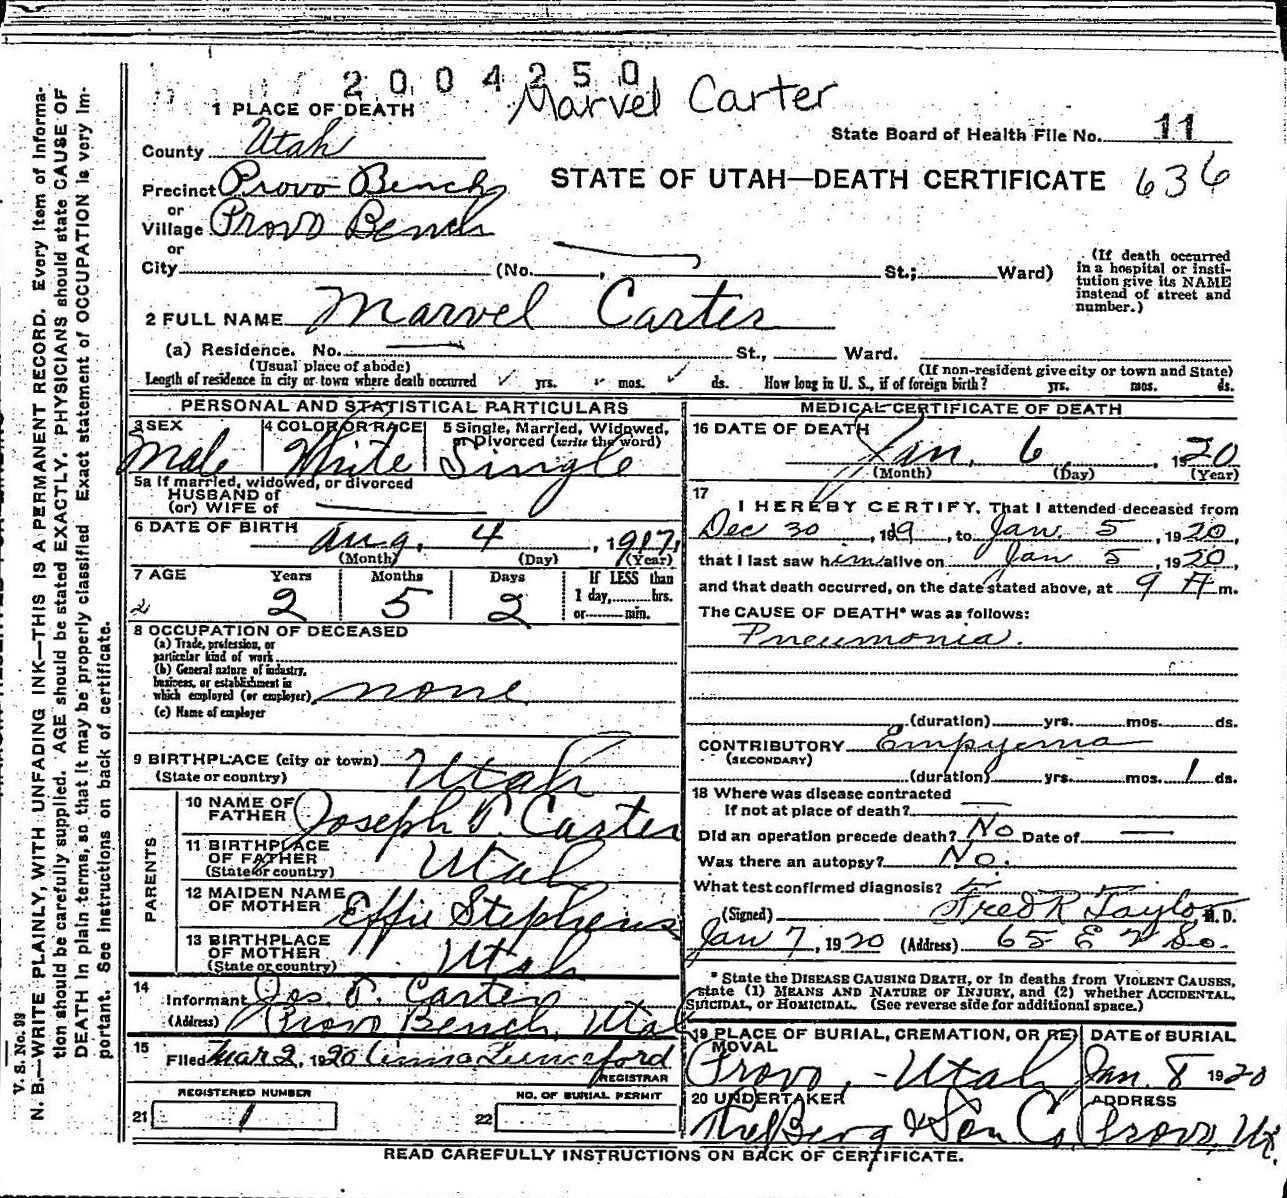 2004250
Marvel Carter
1 PLACE OF DEATH
State Board of Health File No. 11
County Utah
STATE OF UTAH—DEATH CERTIFICATE 636
Precinct Provo Bench
or
Village Provo Bench
or
City (No. , St.; Ward)
(If death occurred in a hospital or insti-
tution give its NAME
instead of street and
number.)
2 FULL NAME Marvel Carter
(a) Residence. No. St., Ward.
(Usual place of abode) (If non-resident give city or town and State)
Length of residence in city or town where death occurred yrs. mos. ds. How long in U. S., if of foreign birth? yrs. mos. ds.
PERSONAL AND STATISTICAL PARTICULARS
3 SEX Male
4 COLOR OR RACE White
5 Single, Married, Widowed,
or Divorced (write the word)
Single
5a If married, widowed, or divorced
HUSBAND of
(or) WIFE of
6 DATE OF BIRTH Aug. 4, 1917,
(Month) (Day) (Year)
7 AGE Years Months Days If LESS than
2 2 5 2 1 day, hrs.
or min.
8 OCCUPATION OF DECEASED
(a) Trade, profession, or
particular kind of work
(b) General nature of industry,
business, or establishment in
which employed (or employer) none
(c) Name of employer
9 BIRTHPLACE (city or town)
(State or country) Utah
PARENTS
10 NAME OF
FATHER Joseph T. Carter
11 BIRTHPLACE
OF FATHER
(State or country) Utah
12 MAIDEN NAME
OF MOTHER Effie Stephens
13 BIRTHPLACE
OF MOTHER
(State or country) Utah
14
Informant Jos. T. Carter
(Address) Provo Bench, Utah
15
Filed Mar 2, 1920
REGISTRAR
REGISTERED NUMBER
21 1
NO. OF BURIAL PERMIT
22
MEDICAL CERTIFICATE OF DEATH
16 DATE OF DEATH
Jan. 6, 1920
(Month) (Day) (Year)
17
I HEREBY CERTIFY, That I attended deceased from
Dec 30, 1919, to Jan. 5, 1920,
that I last saw him alive on Jan 5, 1920,
and that death occurred, on the date stated above, at 9 A m.
The CAUSE OF DEATH* was as follows:
Pneumonia.
(duration) yrs. mos. ds.
CONTRIBUTORY Empyema
(SECONDARY)
(duration) yrs. mos. 1 ds.
18 Where was disease contracted
If not at place of death?
Did an operation precede death? No Date of
Was there an autopsy? No.
What test confirmed diagnosis?
(Signed) Fred R Taylor M. D.
Jan 7, 1920 (Address) 65 E 2 So.
* State the DISEASE CAUSING DEATH, or in deaths from VIOLENT CAUSES,
state (1) MEANS AND NATURE OF INJURY, and (2) whether ACCIDENTAL,
SUICIDAL, or HOMICIDAL. (See reverse side for additional space.)
19 PLACE OF BURIAL, CREMATION, OR RE-
MOVAL
Provo, - Utah
DATE OF BURIAL
Jan. 8 1920
20 UNDERTAKER
The Berg & Son Co
ADDRESS
Provo, Ut.
READ CAREFULLY INSTRUCTIONS ON BACK OF CERTIFICATE.
V. S. No. 98
N. B.—WRITE PLAINLY, WITH UNFADING INK—THIS IS A PERMANENT RECORD. Every item of informa-
tion should be carefully supplied. AGE should be stated EXACTLY. PHYSICIANS should state CAUSE OF
DEATH in plain terms, so that it may be properly classified. Exact statement of OCCUPATION is very im-
portant. See instructions on back of certificate.